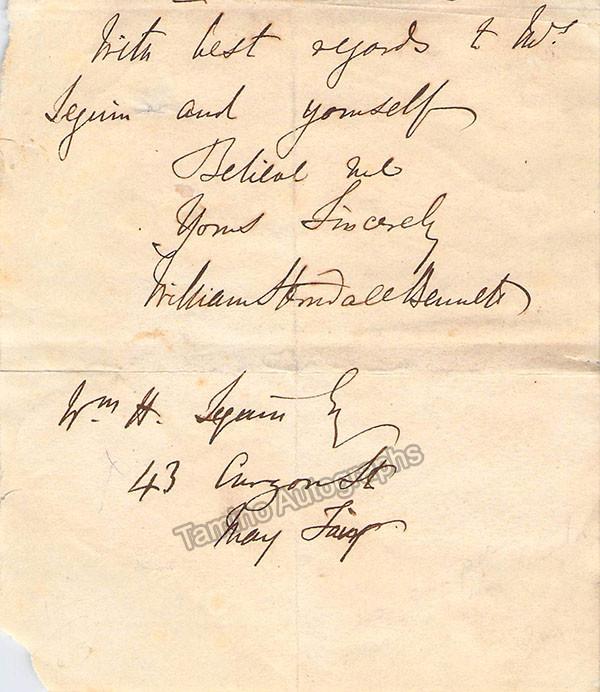 With best regards to Mrs
Seguin and yourself
Believe me
Yours Sincerely
William Sterndale Bennett
Wm H. Seguin Esq
43 Curzon St
May Fair
Tamino Autographs